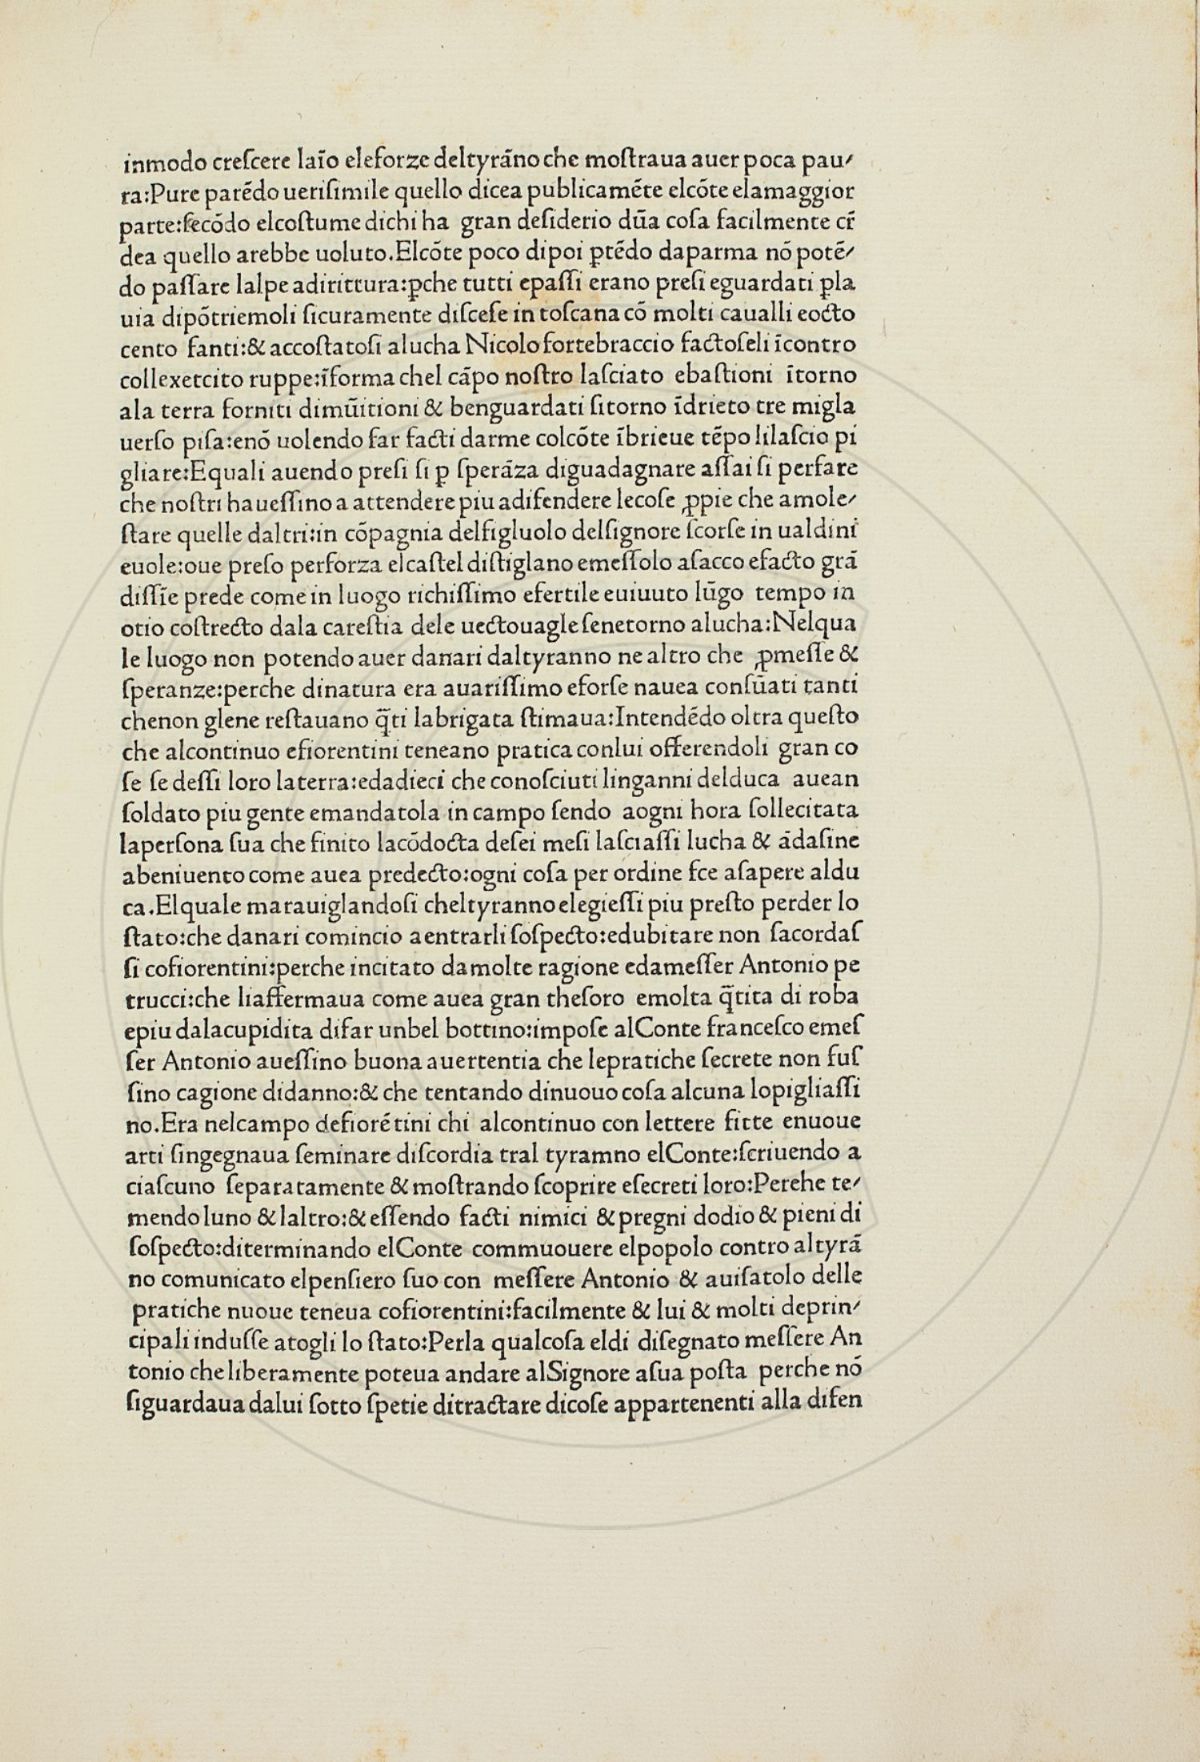 inmodo creſcere laīo eleforze deltyrāno che moſtraua auer poca pau⸗
ra:Pure parēdo ueriſimile quello dicea publicamēte elcōte elamaggior
parte:ſecōdo elcoſtume dichi ha gran deſiderio dūa coſa facilmente cr̄
dea quello arebbe uoluto.Elcōte poco dipoi ꝑtēdo daparma nō potē⸗
do paſſare lalpe adirittura:ꝑche tutti epaſſi erano preſi eguardati ꝑla
uia dipōtriemoli ſicuramente diſceſe in toſcana cō molti caualli eocto
cento fanti:& accoſtatoſi alucha Nicolo fortebraccio factoſeli īcontro
collexercito ruppe:īforma chel cāpo noſtro laſciato ebaſtioni ītorno
ala terra forniti dimūitioni & benguardati ſitorno īdrieto tre migla
uerſo piſa:enō uolendo far facti darme colcōte ībrieue tēpo lilaſcio pi
gliare:Equali auendo preſi ſi ꝑ ſperāza diguadagnare aſſai ſi perfare
che noſtri haueſſino a attendere piu adifendere lecoſe ꝓpie che amole⸗
ſtare quelle daltri:in cōpagnia delfigluolo delſignore ſcorſe in ualdini
euole:oue preſo perforza elcaſtel diſtiglano emeſſolo aſacco efacto grā
diſſīe prede come in luogo richiſſimo efertile euiuuto lūgo tempo in
otio coſtrecto dala careſtia dele uectouagle ſenetorno alucha:Nelqua
le luogo non potendo auer danari daltyranno ne altro che ꝓmeſſe &
ſperanze:perche dinatura era auariſſimo eforſe nauea conſūati tanti
chenon glene reſtauano q̄ti labrigata ſtimaua:Intendēdo oltra queſto
che alcontinuo efiorentini teneano pratica conlui offerendoli gran co
ſe ſe deſſi loro laterra:edadieci che conoſciuti linganni delduca auean
ſoldato piu gente emandatola in campo ſendo aogni hora ſollecitata
laperſona ſua che finito lacōdocta deſei meſi laſciaſſi lucha & ādaſine
abeniuento come auea predecto:ogni coſa per ordine fce aſapere aldu
ca.Elquale marauiglandoſi cheltyranno elegieſſi piu preſto perder lo
ſtato:che danari comincio aentrarli ſoſpecto:edubitare non ſacordaſ
ſi cofiorentini:perche incitato damolte ragione edameſſer Antonio pe
trucci:che liaffermaua come auea gran theſoro emolta q̄tita di roba
epiu dalacupidita difar unbel bottino:impoſe alConte franceſco emeſ
ſer Antonio aueſſino buona auertentia che lepratiche ſecrete non fuſ
ſino cagione didanno:& che tentando dinuouo coſa alcuna lopigliaſſi
no.Era nelcampo defiorētini chi alcontinuo con lettere fitte enuoue
arti ſingegnaua ſeminare diſcordia tral tyramno elConte:ſcriuendo a
ciaſcuno ſeparatamente & moſtrando ſcoprire eſecreti loro:Perehe te⸗
mendo luno & laltro:& eſſendo facti nimici & pregni dodio & pieni di
ſoſpecto:diterminando elConte commuouere elpopolo contro altyrā
no comunicato elpenſiero ſuo con meſſere Antonio & auiſatolo delle
pratiche nuoue teneua cofiorentini:facilmente & lui & molti deprin⸗
cipali induſſe atogli lo ſtato:Perla qualcoſa eldi diſegnato meſſere An
tonio che liberamente poteua andare alSignore aſua poſta perche nō
ſiguardaua dalui ſotto ſpetie ditractare dicoſe appartenenti alla difen